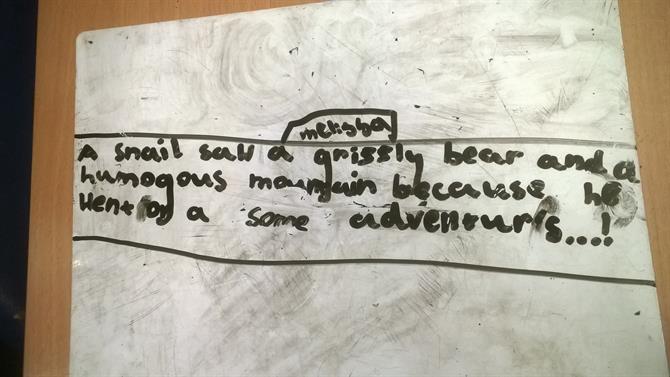 melissa
A snail saw a grissly bear and a
humogous mountain because he
Went on a some adventur's...!